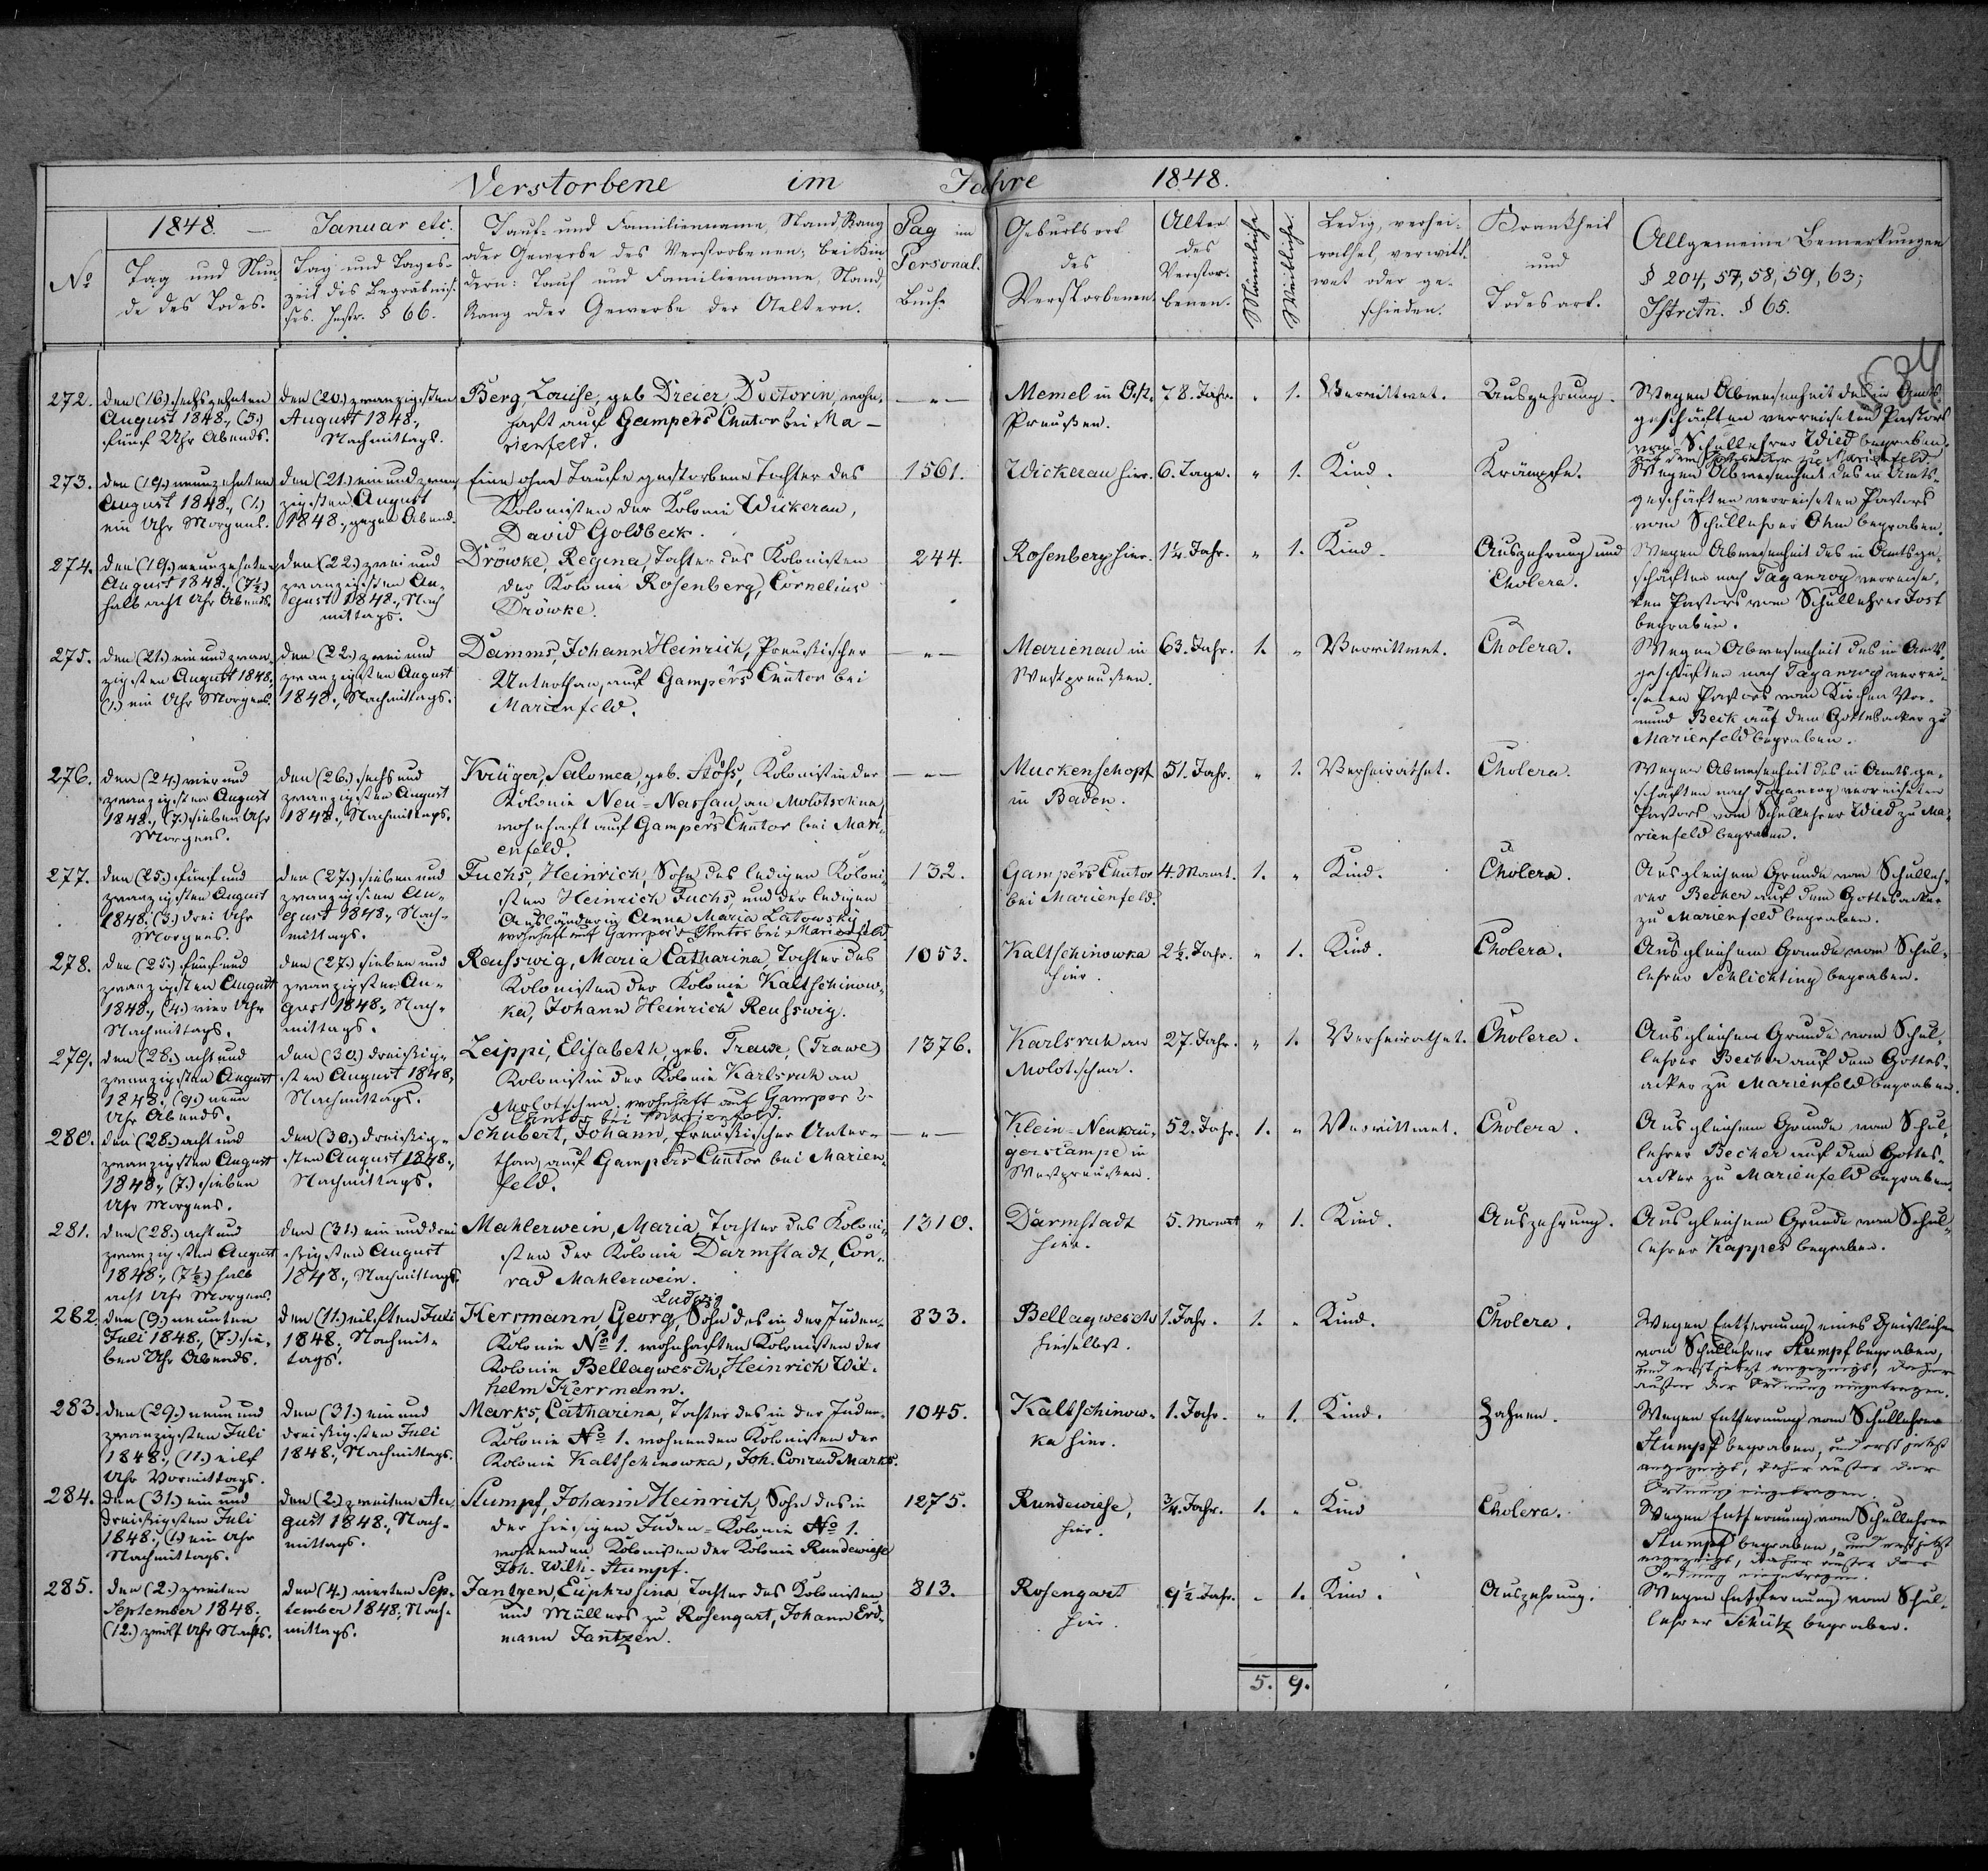 Verstorbene im Jahre 1848.
1848. — Januar etc.
No
Tag und Stun-
de des Todes.
Tag und Tages-
zeit des Begräbnis-
ses. Instr. § 66.
Tauf- und Familienname, Stand, Rang
oder Gewerbe des Verstorbenen; bei Kin-
dern: Tauf und Familienname, Stand,
Rang oder Gewerbe der Aeltern.
Pag im
Personal-
Buch.
Geburtsort
des
Verstorbenen.
Alter
des
Verstor-
benen.
Männliche
Weibliche
Ledig, verhei-
rathet, verwitt-
wet oder ge-
schieden.
Krankheit
und
Todesart.
Allgemeine Bemerkungen
§ 204, 57, 58, 59, 63;
Istrctn. § 65.
272.
den (16.) sechszehnten
August 1848., (5.)
fünf Uhr Abends.
den (20.) zwanzigsten
August 1848.,
Nachmittags.
Berg, Louise, geb. Dreier, Doctorin, wohn-
haft auf Gampers Chutor bei Ma-
rienfeld.
— „ —
Memel in Ost-
Preußen.
78. Jahr.
„
1.
Verwittwet.
Auszehrung.
Wegen Abwesenheit des in Amts-
geschäften verreiseten Pastors
vom Schullehrer Wied begraben,
auf dem Gottesacker zu Marienfeld.
273.
den (19.) neunzehnten
August 1848., (1.)
ein Uhr Morgens.
den (21.) ein und zwan-
zigsten August
1848., gegen Abend.
Eine ohne Taufe gestorbene Tochter des
Kolonisten der Kolonie Wickerau,
David Goldbeck.
1561.
Wickerau hier.
6. Tage.
„
1.
Kind.
Krämpfe.
Wegen Abwesenheit des in Amts-
geschäften verreiseten Pastors
vom Schullehrer Ohm begraben.
274.
den (19.) neunzehnten
August 1848., (7½)
halb acht Uhr Abends.
den (22.) zwei und
zwanzigsten Au-
gust 1848., Nach
mittags.
Dröwke, Regina, Tochter des Kolonisten
der Kolonie Rosenberg, Cornelius
Dröwke.
244.
Rosenberg hier.
1¼. Jahr.
„
1.
Kind.
Auszehrung und
Cholera.
Wegen Abwesenheit des in Amtsge-
schäften nach Taganrog verreise-
ten Pastors vom Schullehrer Jost
begraben.
275.
den (21.) ein und zwan-
zigsten August 1848.,
(1.) ein Uhr Morgens.
den (22.) zwei und
zwanzigsten August
1848., Nachmittags.
Damms, Johann Heinrich, Preußischer
Unterthan, auf Gampers Chutor bei
Marienfeld.
— „ —
Marienau in
Westpreußen.
63. Jahr.
1.
„
Verwittwet.
Cholera.
Wegen Abwesenheit des in Amts-
geschäften nach Taganrog verrei-
seten Pastors vom Kirchen Vor-
mund Beck auf dem Gottesacker zu
Marienfeld begraben.
276.
den (24.) vier und
zwanzigsten August
1848., (7.) sieben Uhr
Morgens.
den (26.) sechs und
zwanzigsten August
1848., Nachmittags.
Krüger, Salomea, geb. Stöß, Kolonistin der
Kolonie Neu-Nassau an Molotschna,
wohnhaft auf Gampers Chutor bei Mari-
enfeld.
— „ —
Muckenschopf
in Baden.
51. Jahr.
„
1.
Verheirathet.
Cholera.
Wegen Abwesenheit des in Amtsge-
schäften nach Taganrog verreiseten
Pastors vom Schullehrer Wied zu Ma-
rienfeld begraben.
277.
den (25.) fünf und
zwanzigsten August
1848., (3.) drei Uhr
Morgens.
den (27.) sieben und
zwanzigsten Au-
gust 1848., Nach-
mittags.
Fuchs, Heinrich, Sohn des ledigen Koloni-
sten Heinrich Fuchs, und der ledigen
Ausländerin Anna Maria Latowsky,
wohnhaft auf Gampers Chutor bei Marienfeld.
132.
Gampers Chutor
bei Marienfeld.
4. Monat.
1.
„
Kind.
Cholera.
Aus gleichem Grunde vom Schulleh-
rer Becher auf dem Gottesacker
zu Marienfeld begraben.
278.
den (25.) fünf und
zwanzigsten August
1848., (4.) vier Uhr
Nachmittags.
den (27.) sieben und
zwanzigsten Au-
gust 1848., Nach-
mittags.
Reußwig, Maria Catharina, Tochter des
Kolonisten der Kolonie Kaltschinow-
ka, Johann Heinrich Reußwig.
1053.
Kaltschinowka
hier.
2½. Jahr.
„
1.
Kind.
Cholera.
Aus gleichem Grunde vom Schul-
lehrer Schlichting begraben.
279.
den (28.) acht und
zwanzigsten August
1848., (9.) neun
Uhr Abends.
den (30.) dreißig-
sten August 1848.,
Nachmittags.
Zeippi, Elisabeth, geb. Trawe, (Trawe)
Kolonistin der Kolonie Karlsruh an
Molotschna, wohnhaft auf Gampers
Chutor bei Marienfeld.
1376.
Karlsruh an
Molotschna.
27. Jahr.
„
1.
Verheirathet.
Cholera.
Aus gleichem Grunde vom Schul-
lehrer Becher auf dem Gottes-
acker zu Marienfeld begraben.
280.
den (28.) acht und
zwanzigsten August
1848., (7.) sieben
Uhr Morgens.
den (30.) dreißig-
sten August 1848.,
Nachmittags.
Schubert, Johann, Preußischer Unter-
than, auf Gampers Chutor bei Marien-
feld.
— „ —
Klein-Neukrü-
gerscampe in
Westpreußen.
52. Jahr.
1.
„
Verwittwet.
Cholera.
Aus gleichem Grunde vom Schul-
lehrer Becher auf dem Gottes-
acker zu Marienfeld begraben.
281.
den (28.) acht und
zwanzigsten August
1848., (7½.) halb
acht Uhr Morgens.
den (31.) ein und drei
ßigsten August
1848., Nachmittags.
Mahlerwein, Maria, Tochter des Koloni-
sten der Kolonie Darmstadt, Con-
rad Mahlerwein.
1310.
Darmstadt
hier.
5. Monat
„
1.
Kind.
Auszehrung.
Aus gleichem Grunde vom Schul-
lehrer Kappes begraben.
282.
den (9.) neunten
Juli 1848., (7.) sie-
ben Uhr Abends.
den (11.) eilften Juli
1848., Nachmit-
tags.
Ludwig
Herrmann, Georg, Sohn des in der Juden-
Kolonie No 1. wohnhaften Kolonisten der
Kolonie Bellagwesch, Heinrich Wil-
helm Herrmann.
833.
Bellagwesch
hieselbst.
1. Jahr.
1.
„
Kind.
Cholera.
Wegen Entfernung eines Geistlichen
vom Schullehrer Stumpf begraben,
und erst jetzt angezeigt, daher
außer der Ordnung eingetragen.
283.
den (29.) neun und
zwanzigsten Juli
1848., (11.) eilf
Uhr Vormittags.
den (31.) ein und
dreißigsten Juli
1848., Nachmittags.
Marks, Catharina, Tochter des in der Juden-
Kolonie No 1. wohnenden Kolonisten der
Kolonie Kaltschinowka, Joh. Conrad Marks.
1045.
Kaltschinow-
ka hier.
1. Jahr.
„
1.
Kind.
Zahnen.
Wegen Entfernung vom Schullehrer
Stumpf begraben, und erst jetzt
angezeigt, daher außer der
Ordnung eingetragen.
284.
den (31.) ein und
dreißigsten Juli
1848., (1.) ein Uhr
Nachmittags.
den (2.) zweiten Au-
gust 1848., Nach-
mittags.
Stumpf, Johann Heinrich, Sohn des in
der hiesigen Juden-Kolonie No 1.
wohnenden Kolonisten der Kolonie Rundewiese
Joh. Wilh. Stumpf.
1275.
Rundewiese,
hier.
¾. Jahr.
1.
„
Kind
Cholera.
Wegen Entfernung vom Schullehrer
Stumpf begraben, und erst jetzt
angezeigt, daher außer der
Ordnung eingetragen.
285.
den (2.) zweiten
September 1848.,
(12.) zwölf Uhr Nachts.
den (4.) vierten Sep-
tember 1848., Nach-
mittags.
Jantzen, Euphrosina, Tochter des Kolonisten
und Müllers zu Rosengart, Johann Erd-
mann Jantzen.
813.
Rosengart
hier.
9½. Jahr.
„
1.
Kind.
Auszehrung.
Wegen Entfernung vom Schul-
lehrer Schütz begraben.
5. 9.